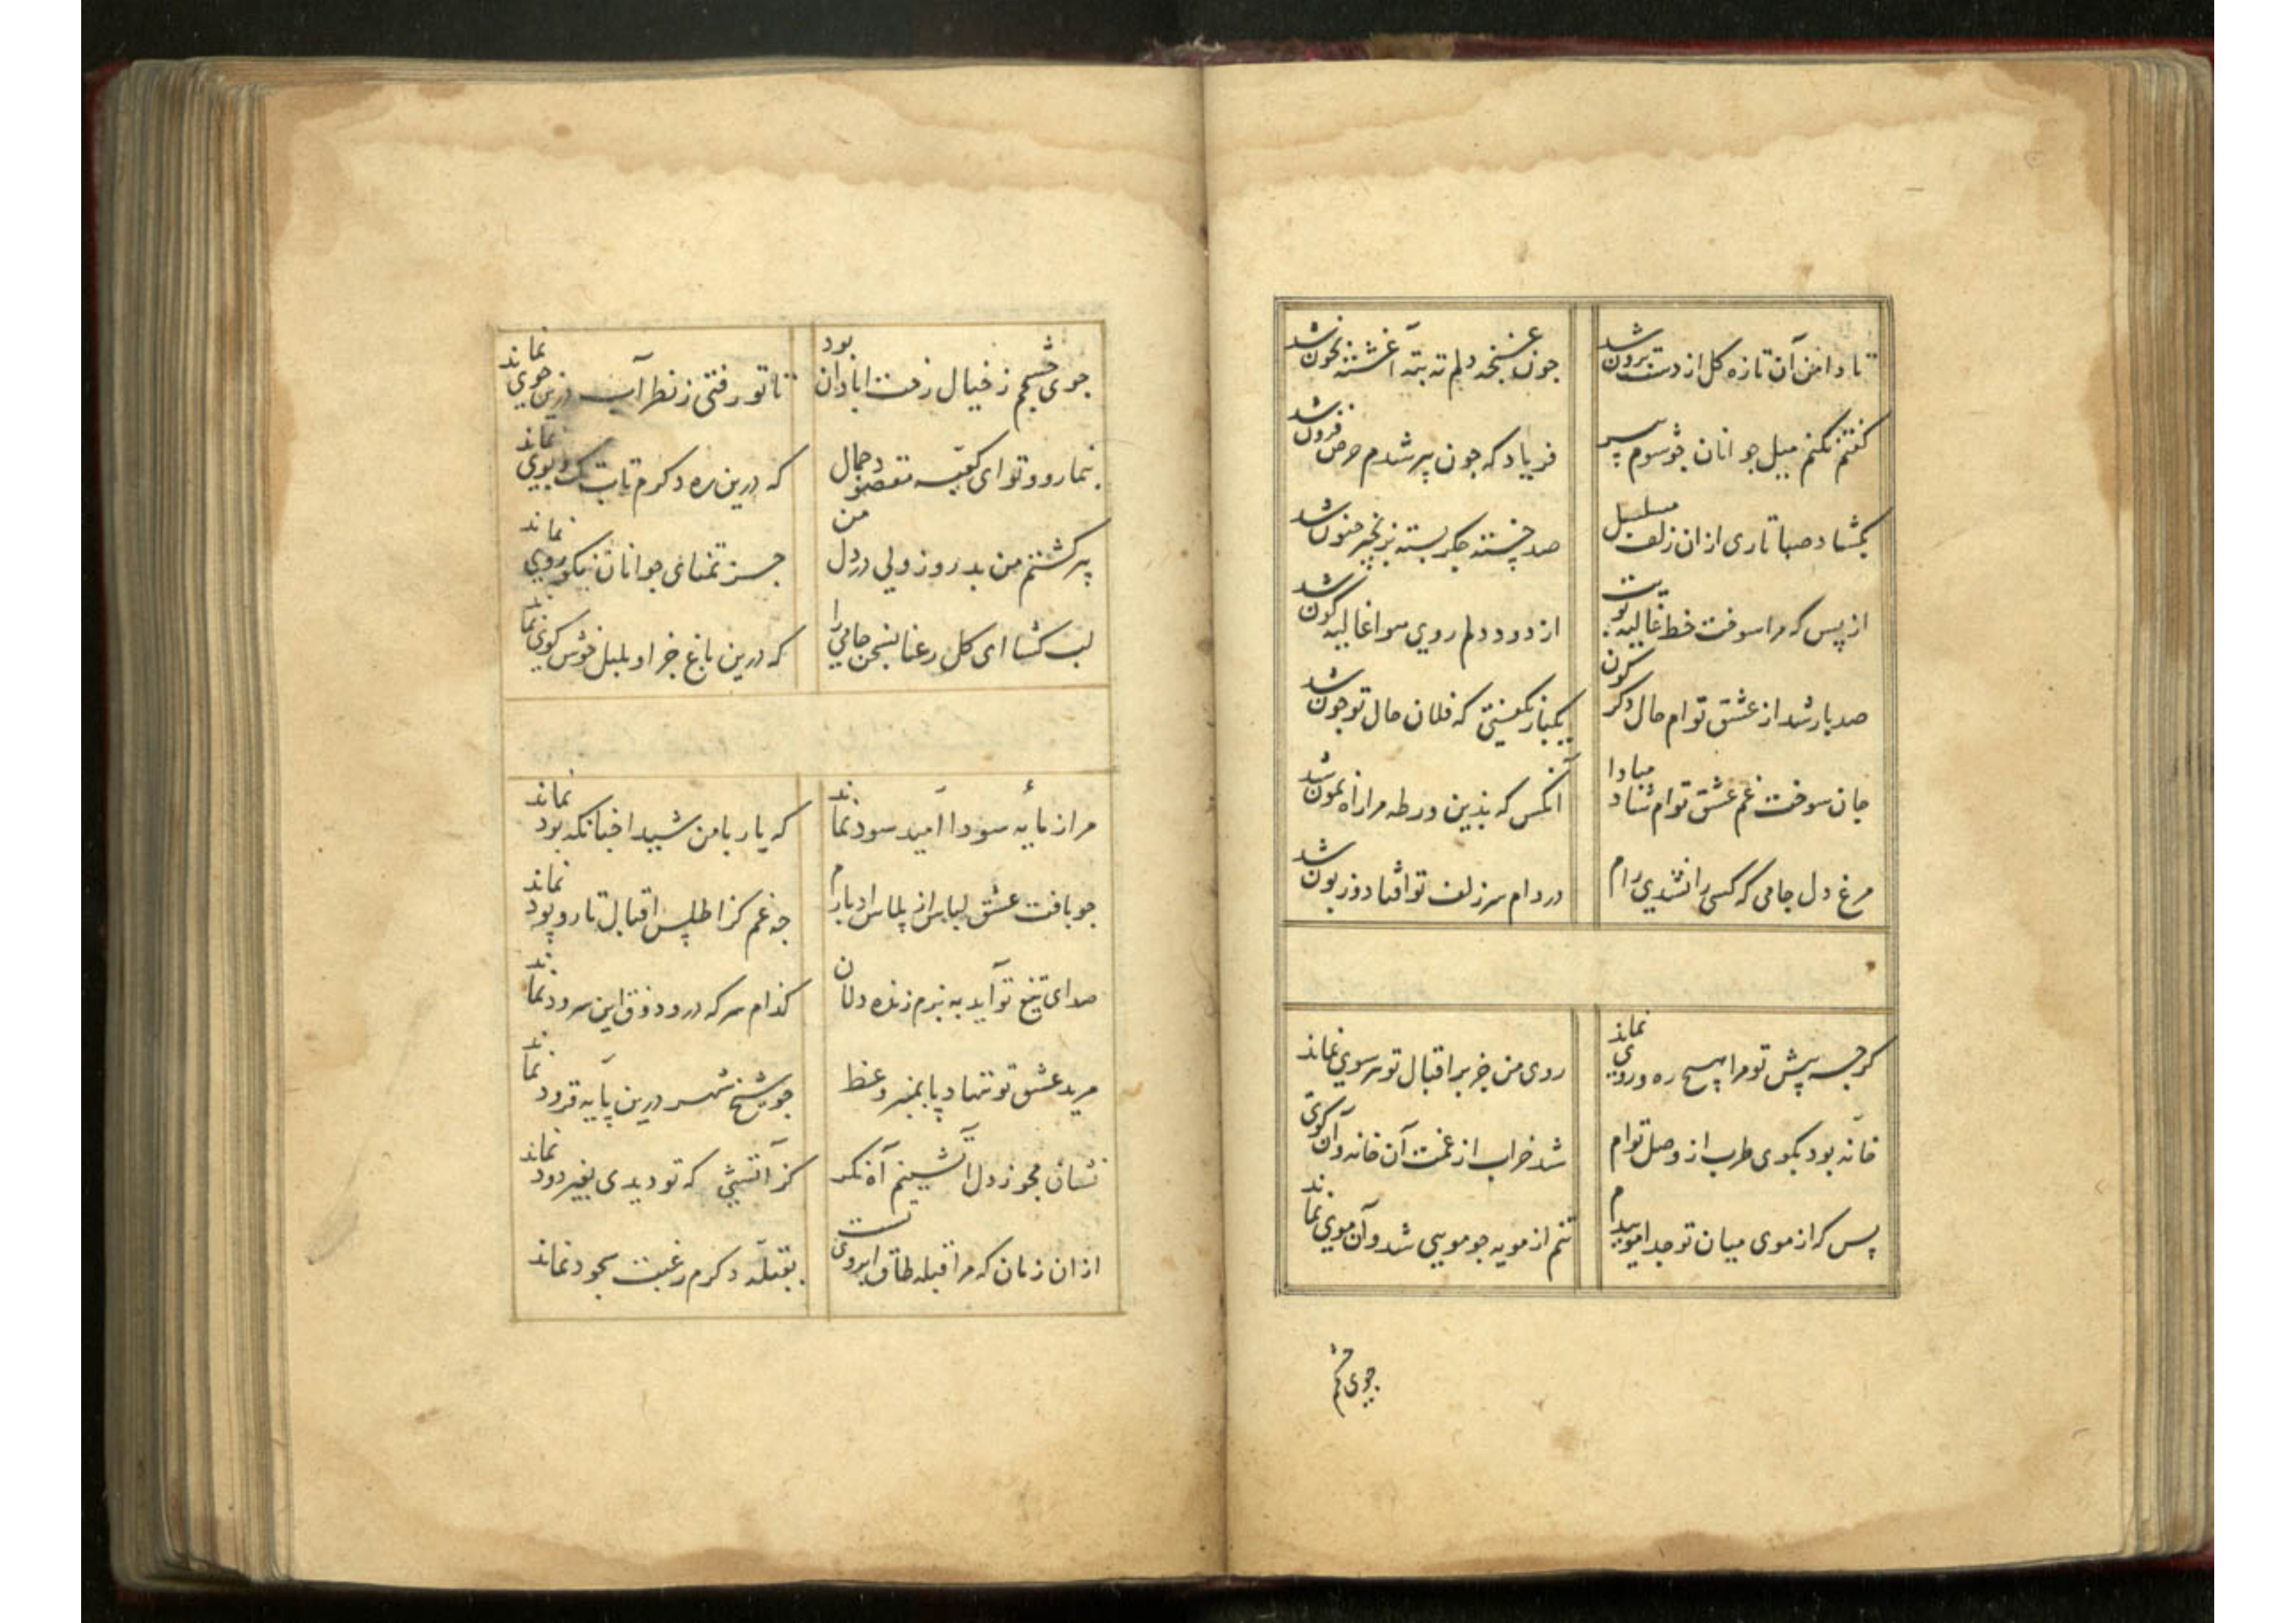 تا دامن آن تازه کل از دست برون شد
جون غنجه دلم ته بته آغشته بخون شد
کفتم نکنم میل جوانان جو شوم پیر
فریاد که جون پیر شدم حرص فزون شد
بکشاد صبا تاری از ان زلف مسلسل
صد خسته جکر بسته زنجیر جنون شد
از پس که مرا سوخت خط غالیه
از دود دلم روی هوا غالیه کون شد
صد بار شد از عشق توام حال دکرکون
یکبار نکفتی که فلان حال تو جون شد
جان سوخت غم عشق توام شاد مبادا
آنکس که بدین ورطه مرا راه نمون شد
مرغ دل جامی که کسی را نشدی رام
در دام سر زلف تو افتاد و زبون شد
کرجه پیش تو مرا هیچ ره و رویی نماند
روی من جز بر اقبال تو هر سویی نماند
خانه بود بکوی طرب از وصل توام
شد خراب از غمت آن خانه و آن کوی
پس که از موی میان تو جدا موییدم
تنم از مویه جو مویی شد و آن موی نماند
جوی جشم
جوی جشمم ز خیال رخت ابادان بود
تا تو رفتی ز نظر آب درین جوی نماند
بنما رو تو ای کعبه مقصود جمال
که درین ره دکرم تاب تک و پوی نماند
پیر کشتم من بد روز ولی در دل من
جز تمنای جوانان نیکو روی نماند
لب کشا ای کل رعنا بسخن جامی را
که درین باغ جز او بلبل خوش کوی نماند
مرا ز مایه سودا امید سود نماند
که یار با من شیدا جنانکه بود نماند
جو بافت عشق لباس از پلاس ادبارم
جه غم کز اطلس اقبال تار و پود نماند
صدای تیغ تو آید به بزم زنده دلان
کدام سر که درو ذوق این سرود نماند
مرید عشق تو ننهاد پا بمنبر وعظ
جو شیخ شهر درین پایه فرود نماند
نشان مجو ز دل آتشینم آه نکر
کز آتشی که تو دیدی بغیر دود نماند
از ان زمان که مرا قبله طاق ابروی تست
بقبله دکرم رغبت سجود نماند